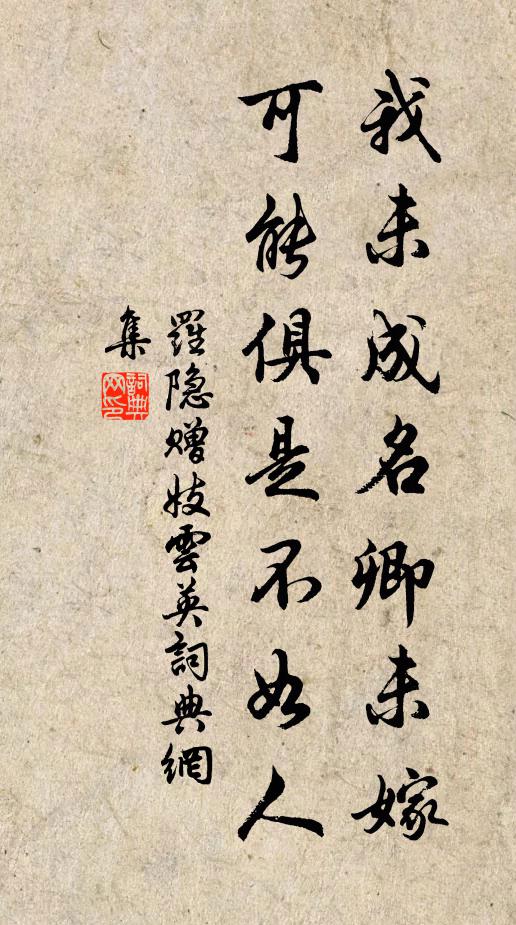 我未成名卿未嫁
可能俱是不如人
羅隐赠妓雲英詞典網
集
詞典
网印